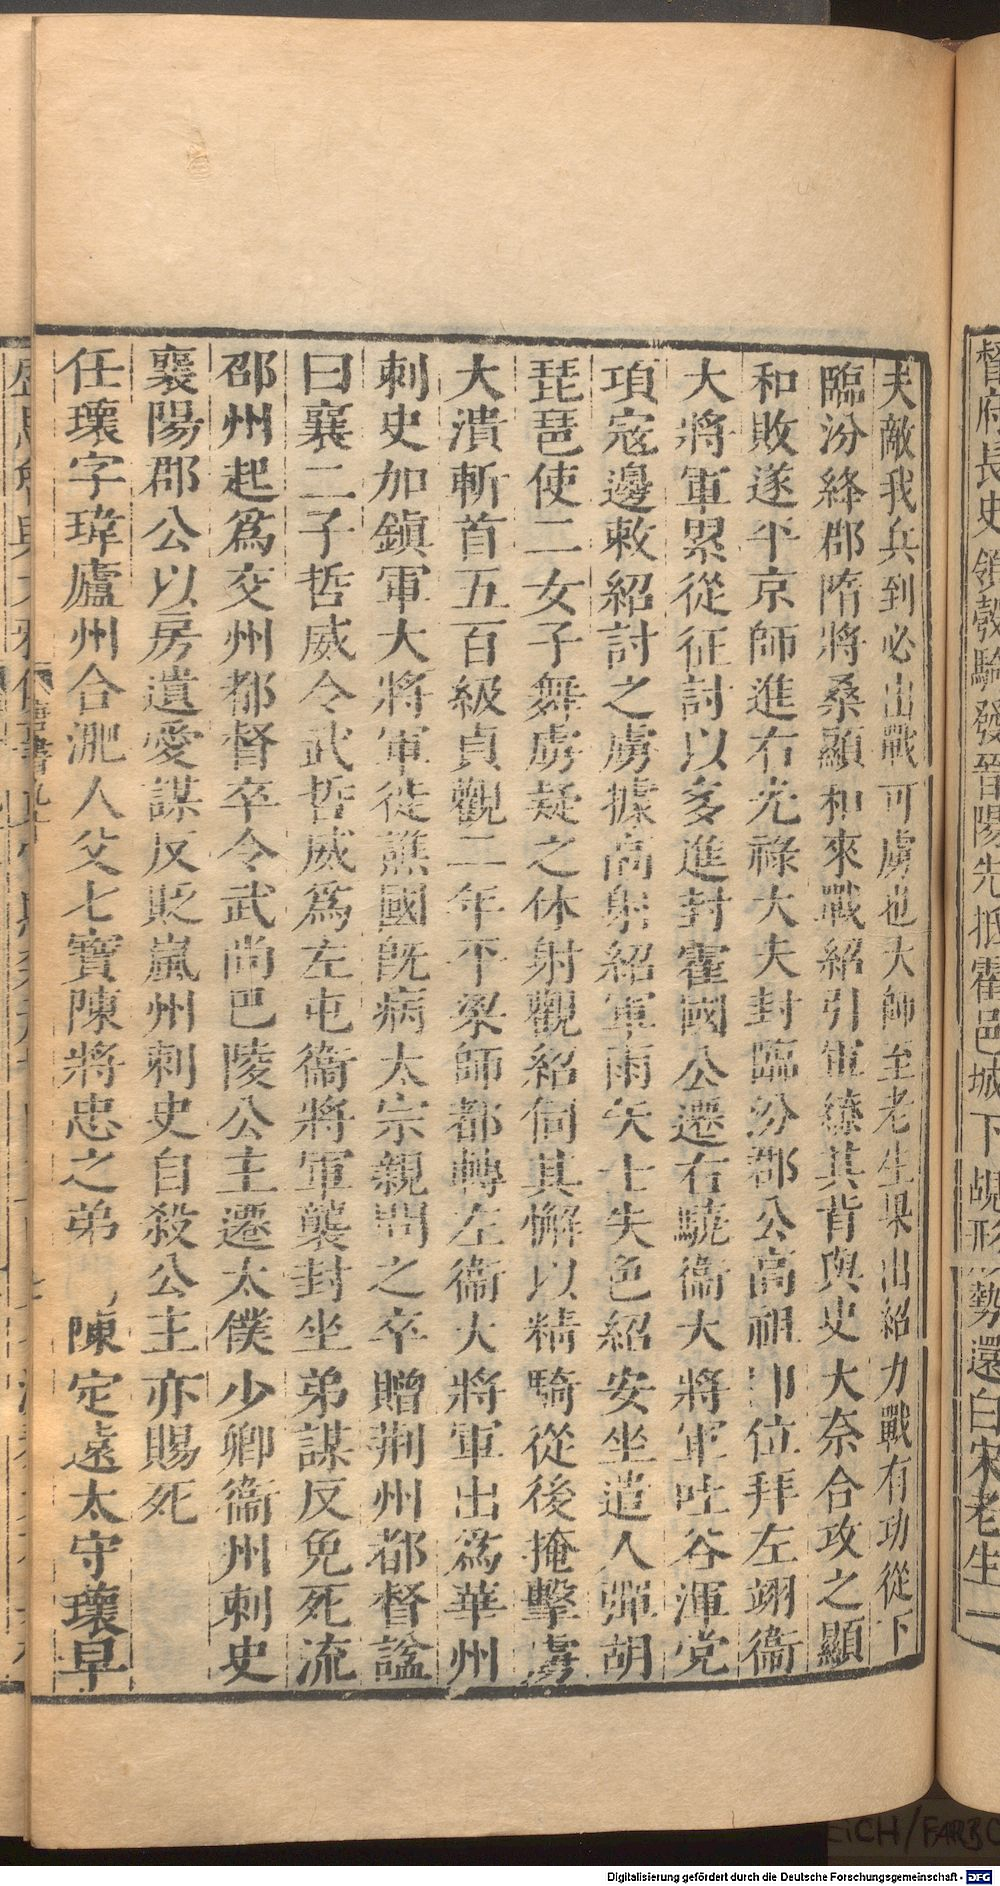 督府長史領勁騎發晉陽先抵霍邑城下覘形勢還白宋老生一
夫敵我兵到必出戰可虜也大師至老生果出紹力戰有功從下
臨汾絳郡隋將桑顯和來戰紹引軍繚其背與史大奈合攻之顯
和敗遂平京師進右光祿大夫封臨汾郡公高祖卽位拜左翊衞
大將軍累從征討以多進封霍國公遷右驍衞大將軍吐谷渾党
項寇邊敕紹討之虜據高射紹軍雨矢士失色紹安坐遣人彈胡
琵琶使二女子舞虜疑之休射觀紹伺其懈以精騎從後掩擊虜
大潰斬首五百級貞觀二年平梁師都轉左衞大將軍出爲華州
刺史加鎭軍大將軍徙譙國旣病太宗親問之卒贈荆州都督諡
曰襄二子哲威令武哲威爲左屯衞將軍襲封坐弟謀反免死流
邵州起爲交州都督卒令武尚巴陵公主遷太僕少卿衞州刺史
襄陽郡公以房遺愛謀反貶嵐州刺史自殺公主亦賜死
任瓌字瑋廬州合淝人父七寶陳將忠之弟 陳定遠太守瓌早
唐書九
Digitalisierung gefördert durch die Deutsche Forschungsgemeinschaft - DFG